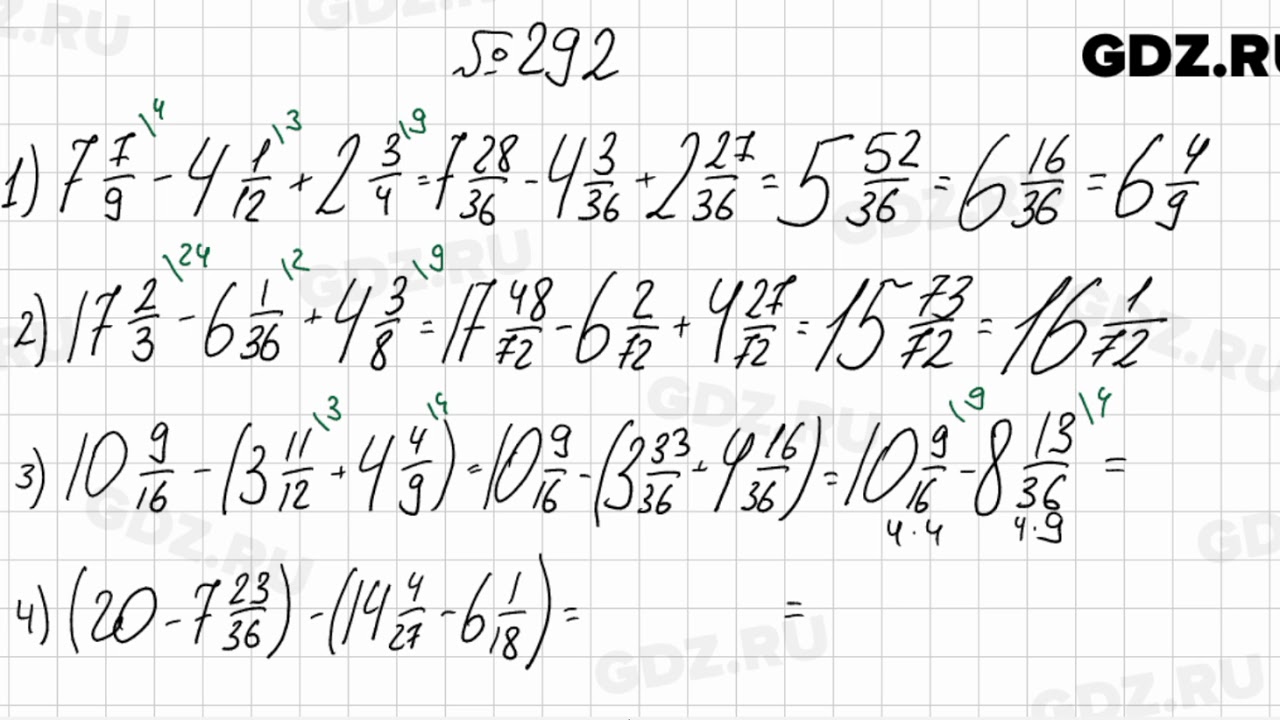 №292
GDZ.RU
1) 7 7/9 \4 - 4 1/12 \3 + 2 3/4 \9 = 7 28/36 - 4 3/36 + 2 27/36 = 5 52/36 = 6 16/36 = 6 4/9
2) 17 2/3 \24 - 6 1/36 \2 + 4 3/8 \9 = 17 48/72 - 6 2/72 + 4 27/72 = 15 73/72 = 16 1/72
3) 10 9/16 - (3 11/12 \3 + 4 4/9 \4) = 10 9/16 - (3 33/36 + 4 16/36) = 10 9/16 \9 - 8 13/36 \4 =
4·4 4·9
4) (20 - 7 23/36) - (14 4/27 - 6 1/18) = =